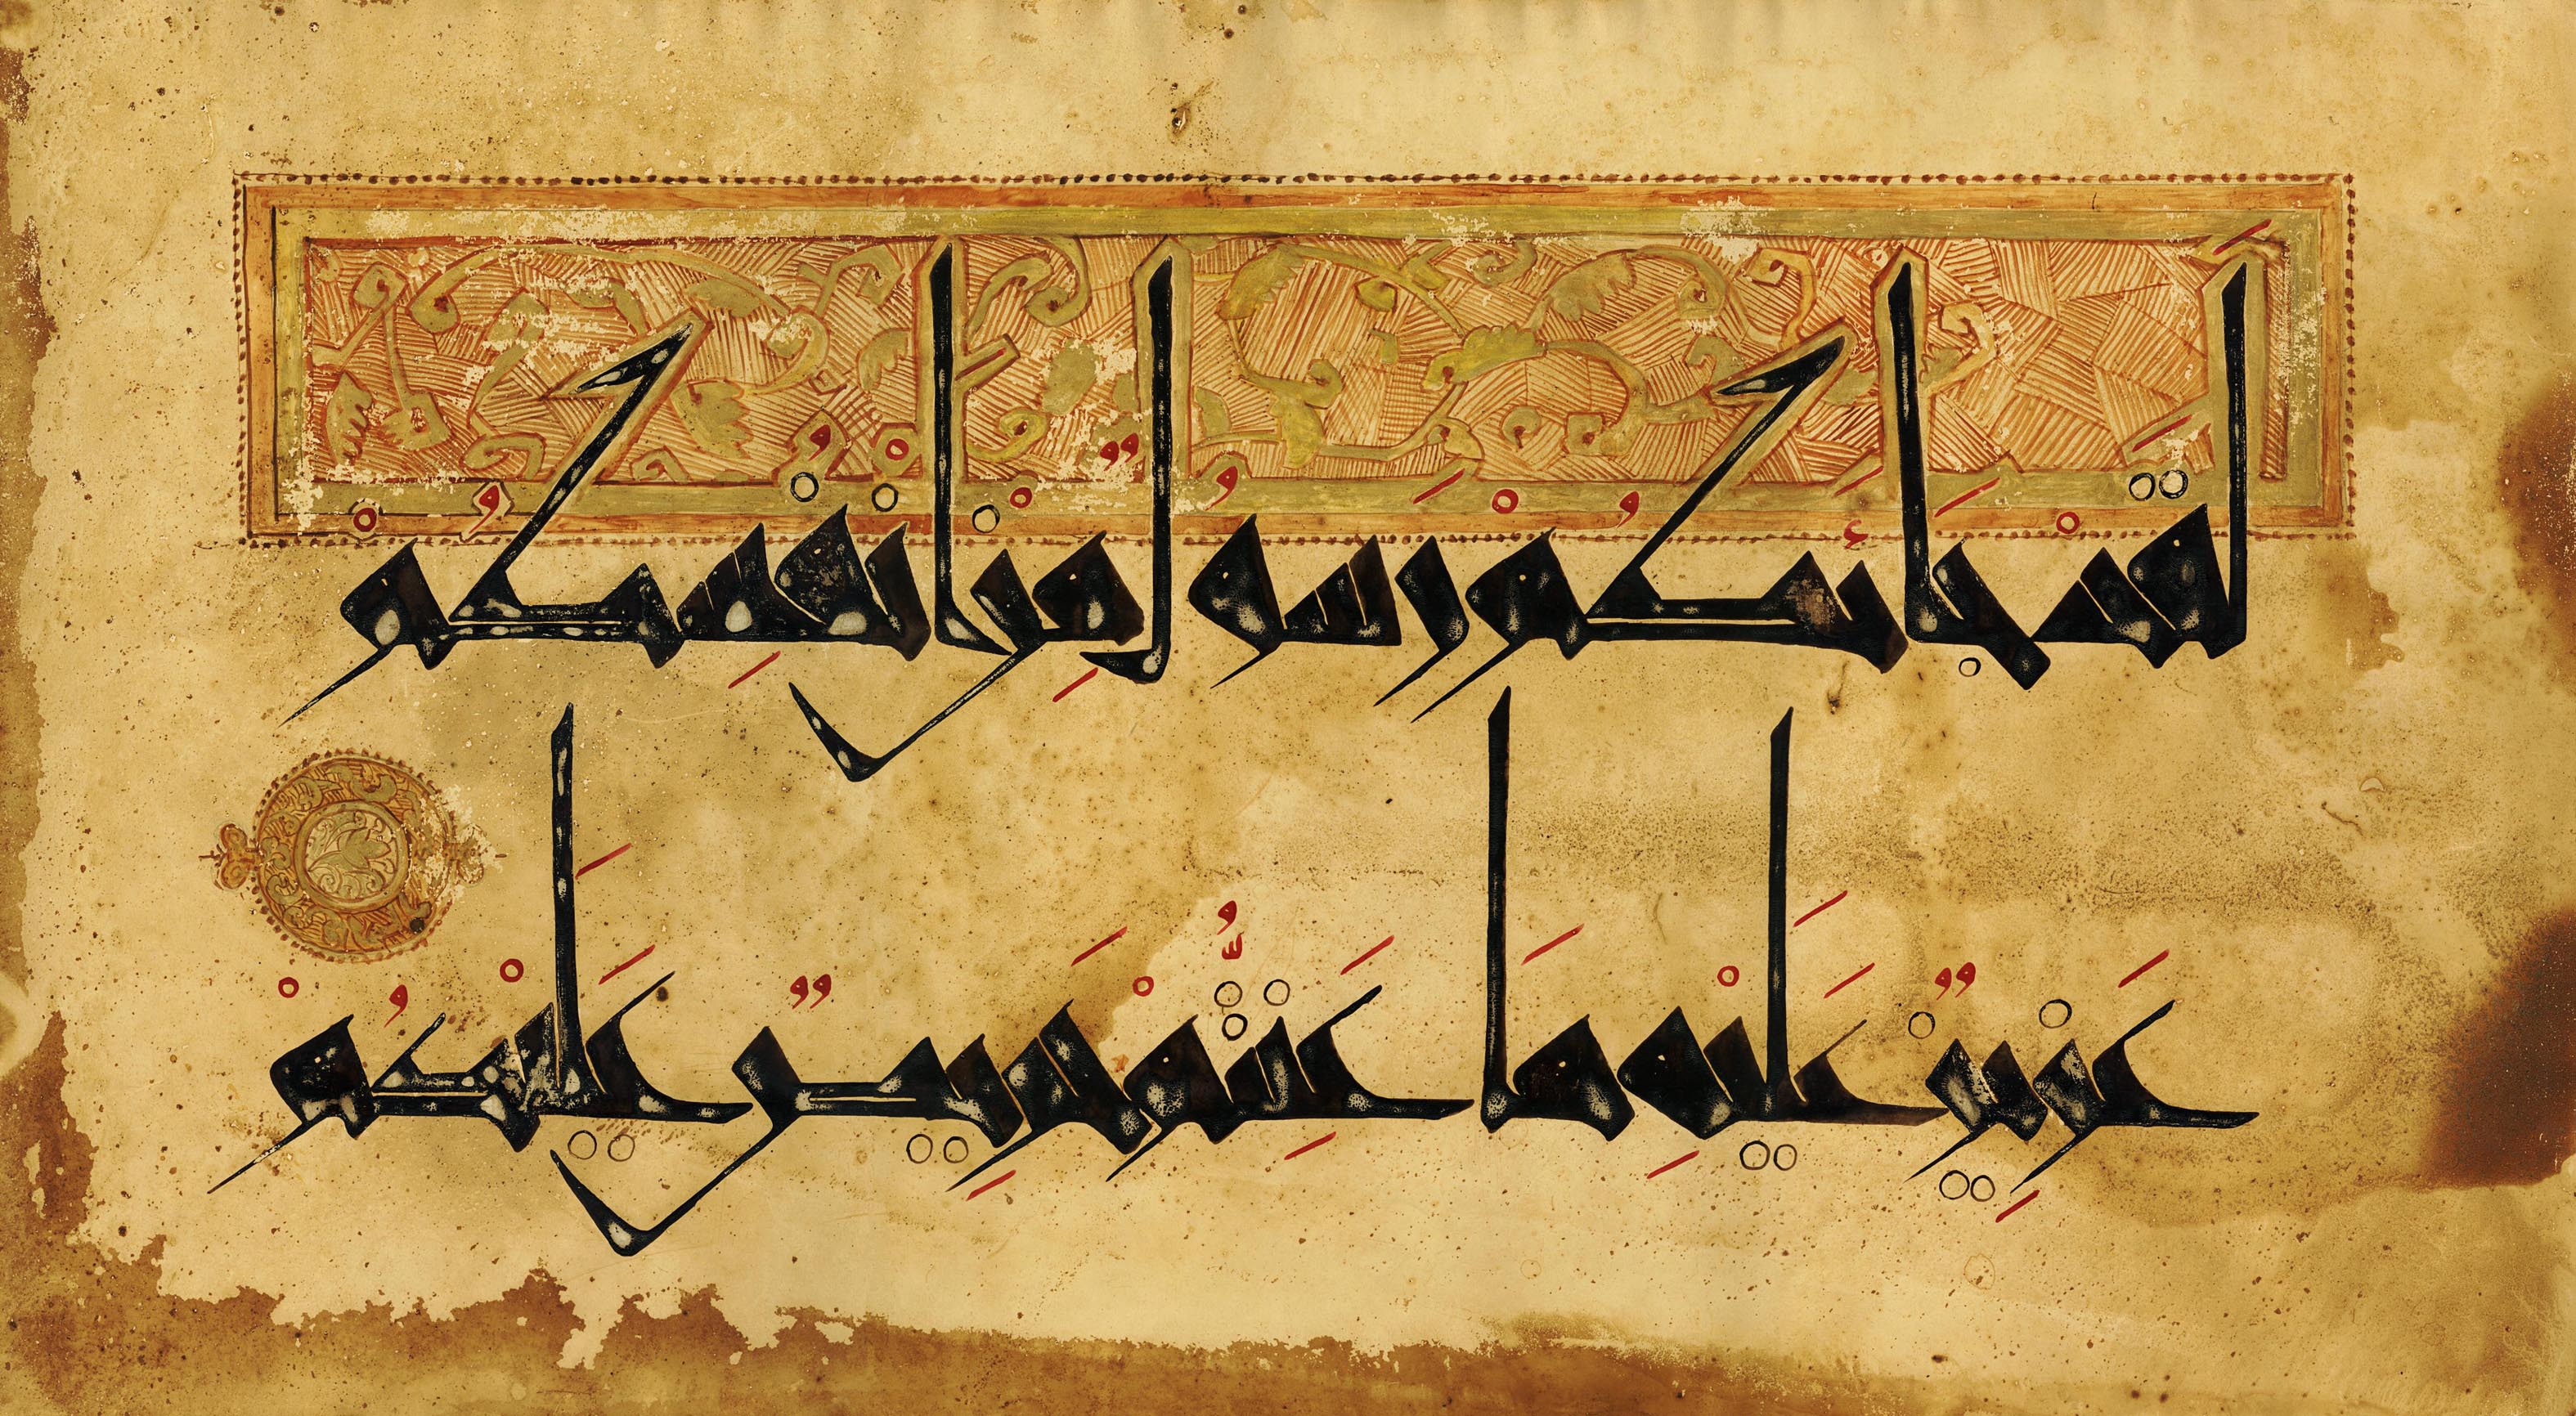 لَقَدْ جَاءَكُمْ رَسُولٌ مِنْ أَنْفُسِكُمْ
عَزِيزٌ عَلَيْهِ مَا عَنِتُّمْ حَرِيصٌ عَلَيْكُمْ